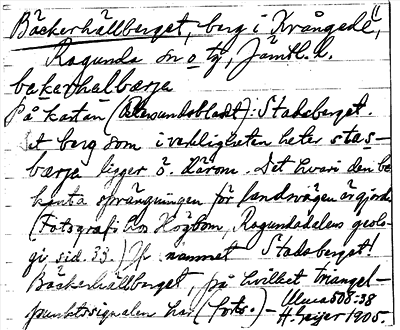 Bäckerhällberget, berg i Krångede,
Ragunda sn o tg, Jämtl. l.
bakerhalbærje
På kartan (Östersundsbladet): Stadsberget.
Ett berg som i verkligheten heter stas-
bærje ligger ö. härom. Det hvari den be
kanta sprängningen för landsvägen är gjord
(Fotografi hos Högbom, Ragundadalens geolo-
gi sid. 33.) Jfr namnet Stadsberget!
Bäckerhällberget, på hvilket triangel-
punktssignalen har (forts.) - Ulma 508:38
H. Geijer 1905.